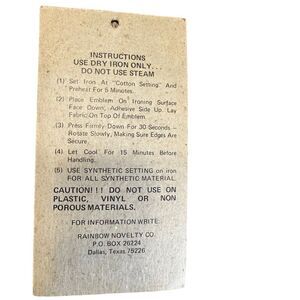 INSTRUCTIONS
USE DRY IRON ONLY...
DO NOT USE STEAM
(1) Set Iron At "Cotton Setting" And
Preheat For 5 Minutes.
(2) Place Emblem On Ironing Surface
Face Down, Adhesive Side Up. Lay
Fabric On Top Of Emblem.
(3) Press Firmly Down For 30 Seconds –
Rotate Slowly, Making Sure Edges Are
Secure.
(4) Let Cool For 15 Minutes Before
Handling.
(5) USE SYNTHETIC SETTING on iron
FOR ALL SYNTHETIC MATERIAL.
CAUTION!!! DO NOT USE ON
PLASTIC, VINYL OR NON
POROUS MATERIALS.
FOR INFORMATION WRITE
RAINBOW NOVELTY CO.
P.O. BOX 26224
Dallas, Texas 75226